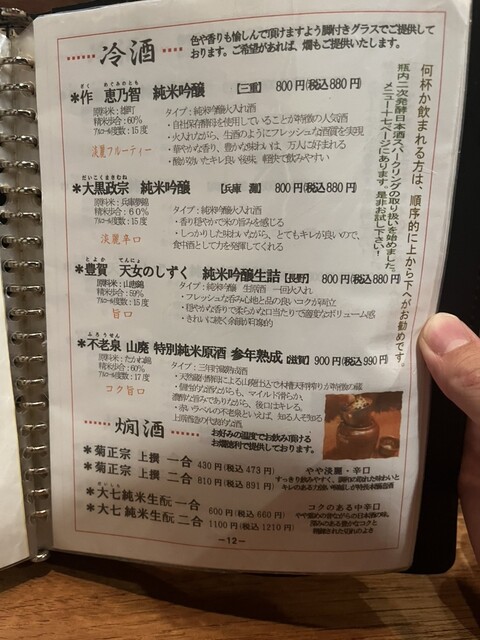 冷酒
色や香りも愉しんで頂けますよう脚付きグラスでご提供して
おります。ご希望があれば、燗もご提供いたします。
何杯か飲まれる方は、順序的に上から下へがお勧めです。
瓶内二次発酵日本酒スパークリングの取り扱いを始めました。
メニュー十七ページにあります。是非お試し下さい!
ざく めぐみのとも
*作 恵乃智 純米吟醸 【三重】 800円(税込880円)
原料米:雄町
精米歩合:60%
アルコール度数:15度
淡麗フルーティー
タイプ:純米吟醸火入れ酒
・自社保存酵母を使用していることが特徴の人気酒
・火入れながら、生酒のようにフレッシュな品質を実現
・華やかな香り、豊かな味わいは、万人に好まれる
・酸が効いたキレ良い後味、軽快で飲みやすい
だいこくまさむね
*大黒政宗 純米吟醸 【兵庫 灘】 800円(税込880円)
原料米:兵庫夢錦
精米歩合:60%
アルコール度数:15度
淡麗辛口
タイプ:純米吟醸火入れ酒
・香り穏やかで米の旨みを感じる
・しっかりした味わいながら、とてもキレが良いので、
食中酒として力を発揮してくれる
とよか てんにょ
*豊賀 天女のしずく 純米吟醸生詰 【長野】 800円(税込880円)
原料米:山恵錦
精米歩合:59%
アルコール度数:15度
旨口
タイプ:純米吟醸 生詰酒 一回火入れ
・フレッシュな呑み心地と品の良いコクが両立
・穏やかな香りで柔らかな口当たりで適度なボリューム感
・きれいに続く余韻が印象的
ふろうせん
*不老泉 山廃 特別純米原酒 参年熟成 【滋賀】 900円(税込990円)
原料米:たかね錦
精米歩合:60%
アルコール度数:17度
コク旨口
タイプ:三年貯蔵熟成酒
・天然蔵付酵母による山廃仕込で木槽天秤搾りが特徴の蔵
・個性的な酒ながらも、マイルド滑らか、
濃醇な旨みでありながら、後口はキレる。
・赤いラベルの不老泉といえば、知る人ぞ知る
上原酒造の代表的な酒
燗酒
お好みの温度でお飲み頂ける
お燗徳利で提供しております。
*菊正宗 上撰 一合 430円(税込473円)
菊正宗 上撰 二合 810円(税込891円)
やや淡麗・辛口
すっきり飲みやすく、
だいしち
*大七 純米生酛 一合 600円(税込660円)
*大七 純米生酛 二合 1100円(税込1210円)
コクのある中辛口
−12−